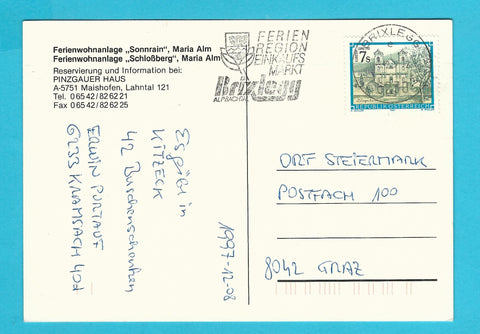 Ferienwohnanlage „Sonnrain", Maria Alm
Ferienwohnanlage „Schloßberg", Maria Alm
Reservierung und Information bei:
PINZGAUER HAUS
A-5751 Maishofen, Lahntal 121
Tel. 06542/826221
Fax 06542/826225
FERIEN
REGION
EINKAUFS
MARKT
Brixlegg
ALPBACHTAL
BRIXLEGG
7 S
REPUBLIK ÖSTERREICH
1997-12-08
Es gibt in
KITZECK
42 Buschenschenken
ERWIN PORTAUF
6233 KRAMSACH 40d
ORF STEIERMARK
POSTFACH 100
8042 GRAZ